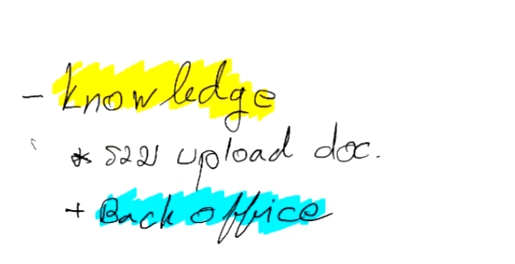 - knowledge
* ระบบ upload doc.
+ Back office